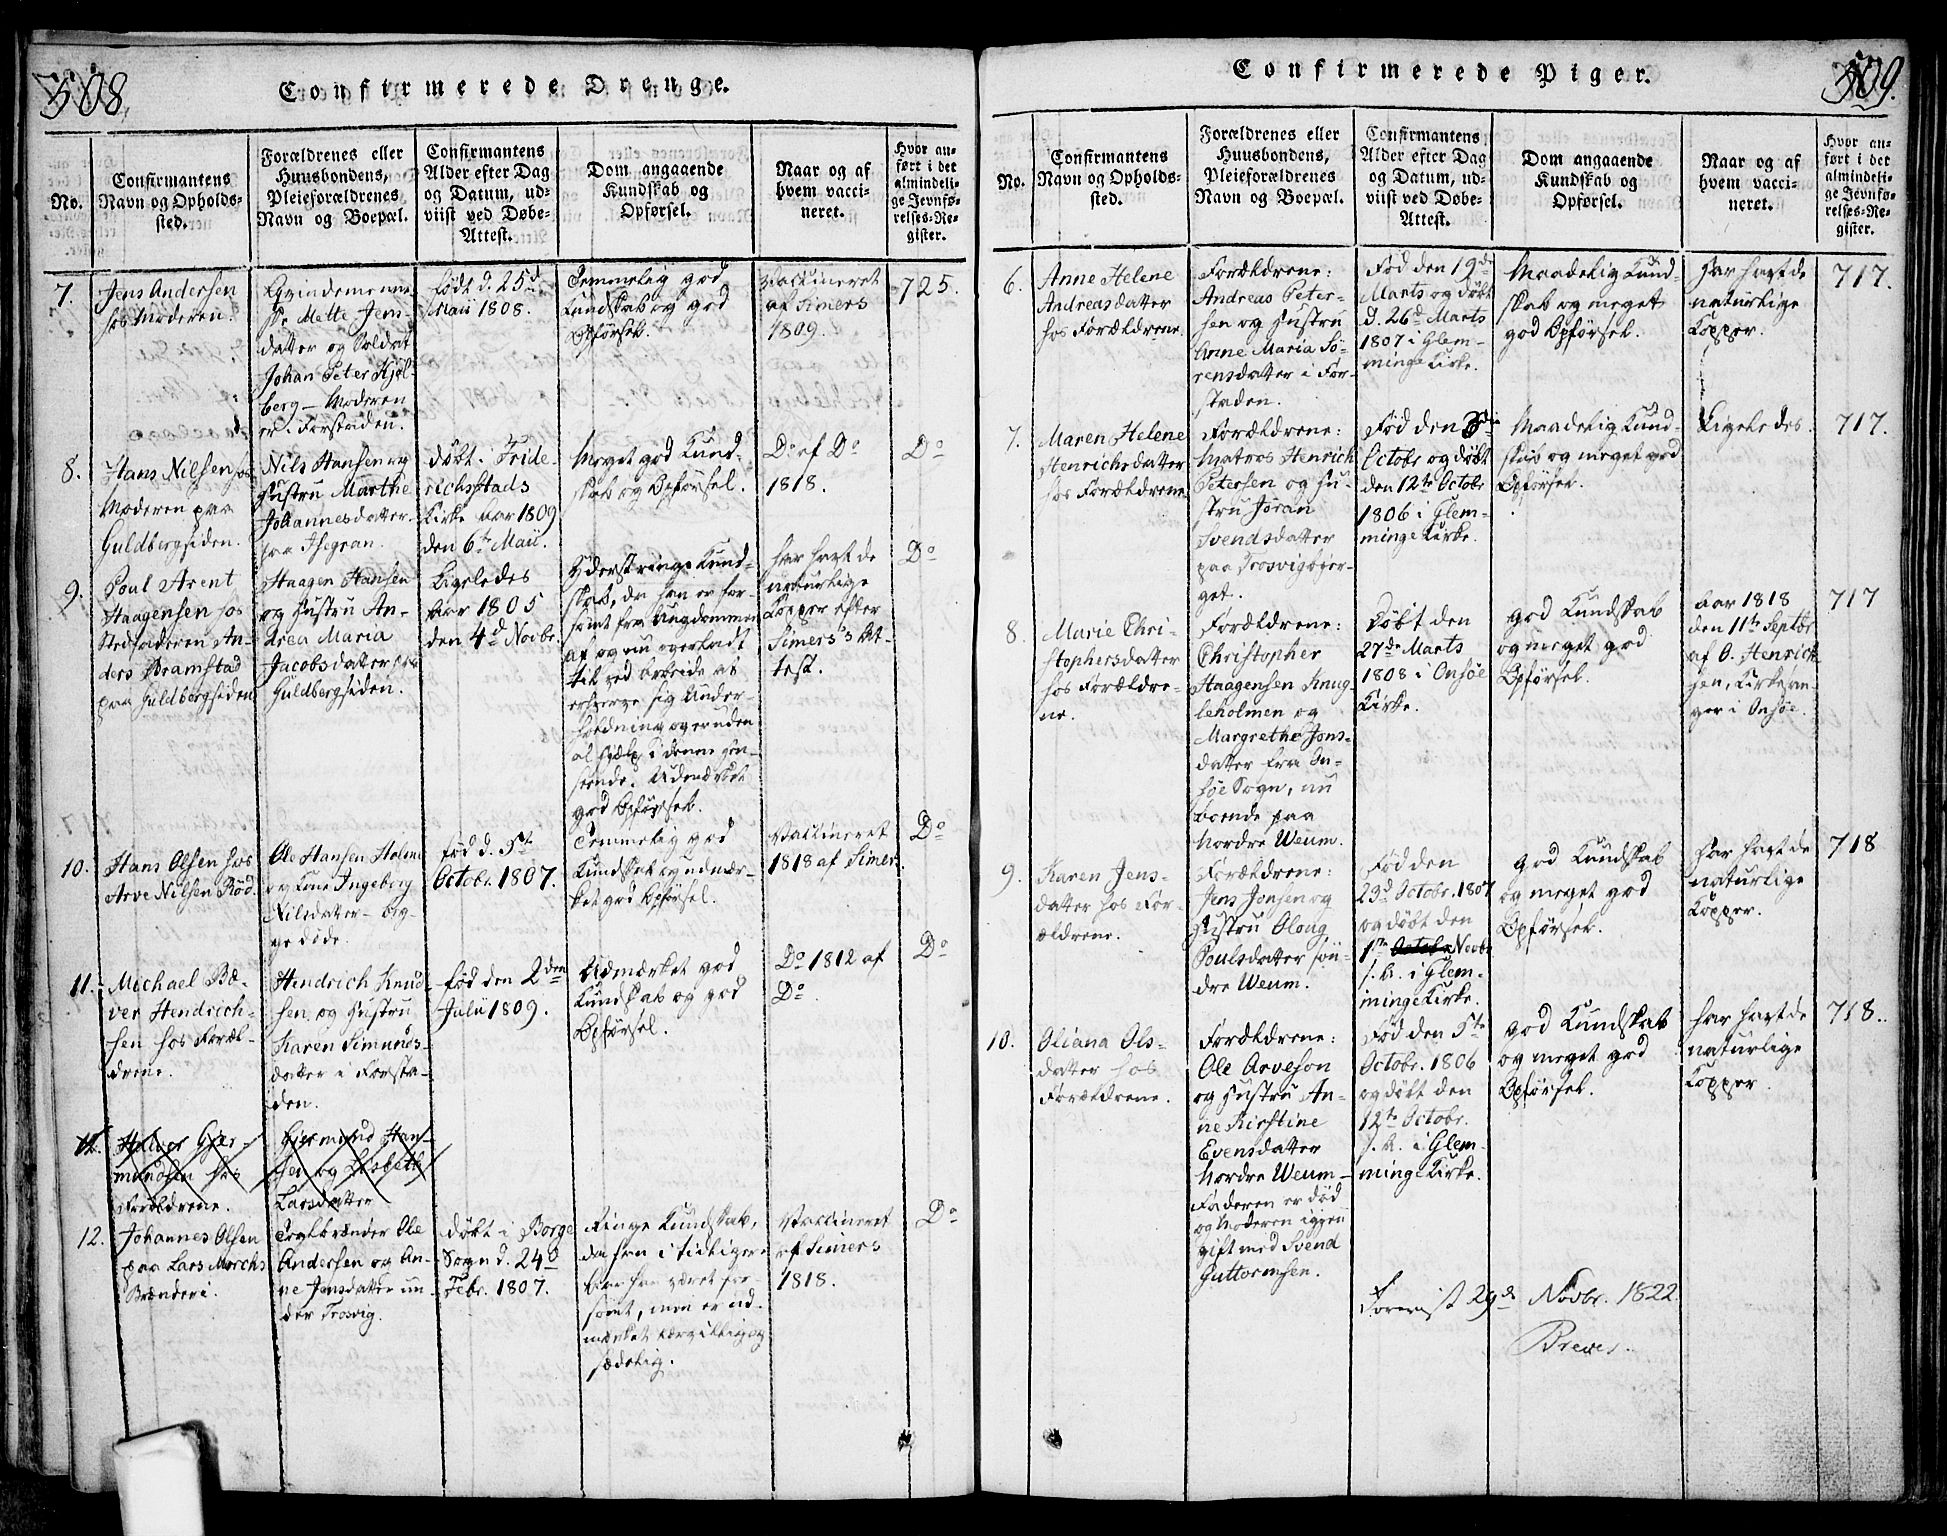 508.
Confirmerede Drenge.
No.
Confirmantens
Navn og Opholds-
sted.
Forældrenes eller
Huusbondens,
Pleieforældrenes
Navn og Boepæl.
Confirmantens
Alder efter Dag
og Datum, ud-
viist ved Døbe-
Attest.
Dom angaaende
Kundskab og
Opførsel.
Naar og af
hvem vacci-
neret.
Hvor an-
ført i det
almindeli-
ge Jevnfø-
relses-Re-
gister.
7.
Jens Andersen
hos Moderen.
Qvindemenne-
sk. Mette Jens-
datter og Soldat
Johan Peter Kjøl-
berg – Moderen
er i Forstaden.
født d. 25de
Maii 1808.
Temmelig god
Kundskab og god
Opførsel.
Vaccineret
af Simers
1809.
725.
8.
Hans Nilsen hos
Moderen paa
Guldbergsiden.
Nils Hansen og
Hustru Marthe
Johannesdatter
paa Isegran.
døbt i Fride-
richsstads
Kirke Aar 1809
den 6te Maii.
Meget god Kund-
skab og Opførsel.
Do af Do
1818.
Do
9.
Poul Arent
Haagensen hos
Stedfaderen An-
ders Bramstad
paa Guldbergsiden
Haagen Hansen
og Hustru An-
drea Maria
Jacobsdatter paa
Guldbergsiden.
Ligeledes
Aar 1805
den 4de Novbr.
Yderst ringe Kund-
skab, da han er for-
sømt fra Ungdommen
af og nu overladt
til ved Arbeide at
erhverve sig Under-
holdning og er uden
al Hjælp i denne Hen-
seende. Udmærket
god Opførsel.
har havt de
naturlige
Kopper efter
Simers's At-
test.
Do
10.
Hans Olsen hos
Arve Nilsen Rød.
Ole Hansen Holme
og Kone Ingeborg
Nilsdatter – beg-
ge døde.
født d. 5te
Octobr. 1807.
Temmelig god
Kundskab og udmær-
ket god Opførsel.
Vaccineret
1818 af Simers.
Do
11.
Michael Bæ-
ver Hendrich-
sen hos Foræl-
drene.
Hendrich Knud-
sen og Hustru
Karen Simunds-
datter i Forsta-
den.
født den 2den
Julii 1809.
Udmærket god
Kundskab og god
Opførsel.
Do 1812 af
Do.
Do
12.
Halvor Gjer-
mundsen hos
Forældrene.
Gjermund Han-
sen og Lisbeth
Larsdatter
12.
Johannes Olsen
paa Lars Morchs
Brænderi.
Teglbrænder Ole
Andersen og An-
ne Jensdatter un-
der Trosvig.
døbt i Borge
Sogn d. 24d
Febr. 1807.
Ringe Kundskab,
da han i tidligere
Aar har været for-
sømt, men er ud-
mærket lærvillig og
sædelig.
Vaccineret
af Simers
1818.
Do
509.
Confirmerede Piger.
No.
Confirmantens
Navn og Opholds-
sted.
Forældrenes eller
Huusbondens,
Pleieforældrenes
Navn og Boepæl.
Confirmantens
Alder efter Dag
og Datum, ud-
viist ved Døbe-
Attest.
Dom angaaende
Kundskab og
Opførsel.
Naar og af
hvem vacci-
neret.
Hvor an-
ført i det
almindeli-
ge Jevnfø-
relses-Re-
gister.
6.
Anne Helene
Andreasdatter
hos Forældrene.
Forældrene:
Andreas Peter-
sen og Hustru
Anne Maria Sö-
rensdatter i For-
staden.
Fød den 19de
Marts og døbt
d. 26de Marts
1807 i Glem-
minge Kirke.
Maadelig Kund-
skab og meget
god Opførsel.
har havt de
naturlige
Kopper.
717.
7.
Maren Helene
Henrichsdatter
hos Forældrene
Forældrene:
Matros Henrich
Petersen og Hu-
stru Jøran
Svendsdatter
paa Trosvigbjer-
get.
Fød den
Octobr og døbt
den 12te Octobr
1806 i Glem-
minge Kirke.
Maadelig Kund-
skab og meget god
Opførsel.
Ligeledes.
717.
8.
Marie Chri-
stophersdatter
hos Forældre-
ne.
Forældrene:
Christopher
Haagensen Knug-
leholmen og
Margrethe Jons-
datter fra On-
søe Sogn, nu
boende paa
Nordre Weum.
Døbt den
27de Marts
1808 i Onsøe
Kirke.
god Kundskab
og meget god
Opførsel.
Aar 1818
den 11te Septbr
af O. Henrich-
sen, Kirkesan-
ger i Onsøe.
717
9.
Karen Jens-
datter hos For-
ældrene.
Forældrene:
Jens Jonsen og
Hustru Oloug
Poulsdatter søn-
dre Weum.
Fød den
23d Octobr. 1807
og døbt den
1ste Octobr Novbr
s. A. i Glem-
minge Kirke.
god Kundskab
og meget god
Opførsel.
har havt de
naturlige
Kopper.
718
10.
Oliana Ols-
datter hos
Forældrene.
Forældrene:
Ole Arveson
og Hustru An-
ne Kirstine
Evensdatter
Nordre Weum –
Faderen er død
og Moderen igjen
gift med Svend
Guttormsen.
Fød den 5te
Octobr. 1806
og døbt den
12te Octobr.
s. A. i Glem-
minge Kirke.
god Kundskab
og meget god
Opførsel.
har havt de
naturlige
Kopper.
718.
Foreviist 29de Novbr. 1822.